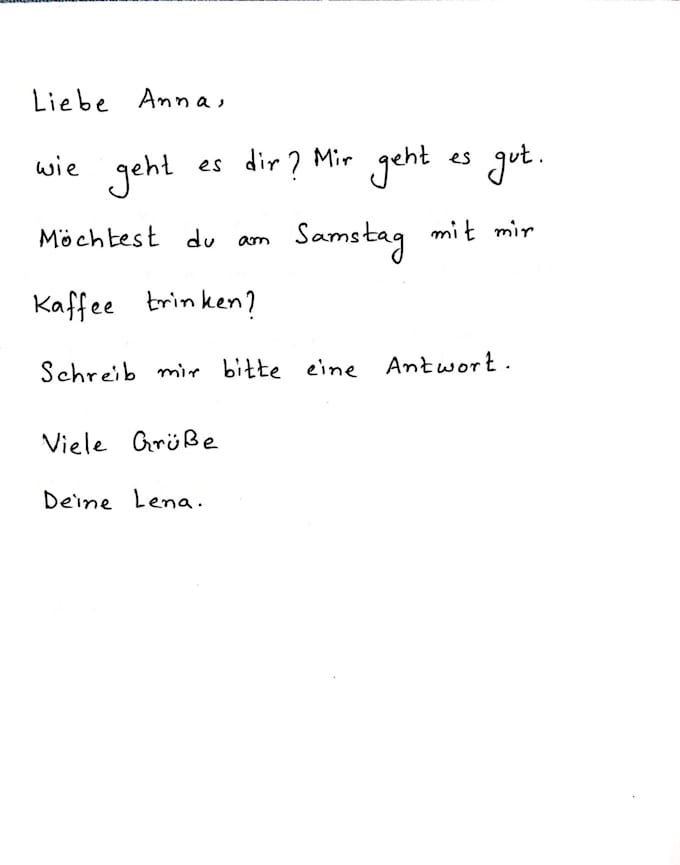 Liebe Anna,
wie geht es dir? Mir geht es gut.
Möchtest du am Samstag mit mir
Kaffee trinken?
Schreib mir bitte eine Antwort.
Viele Grüße
Deine Lena.